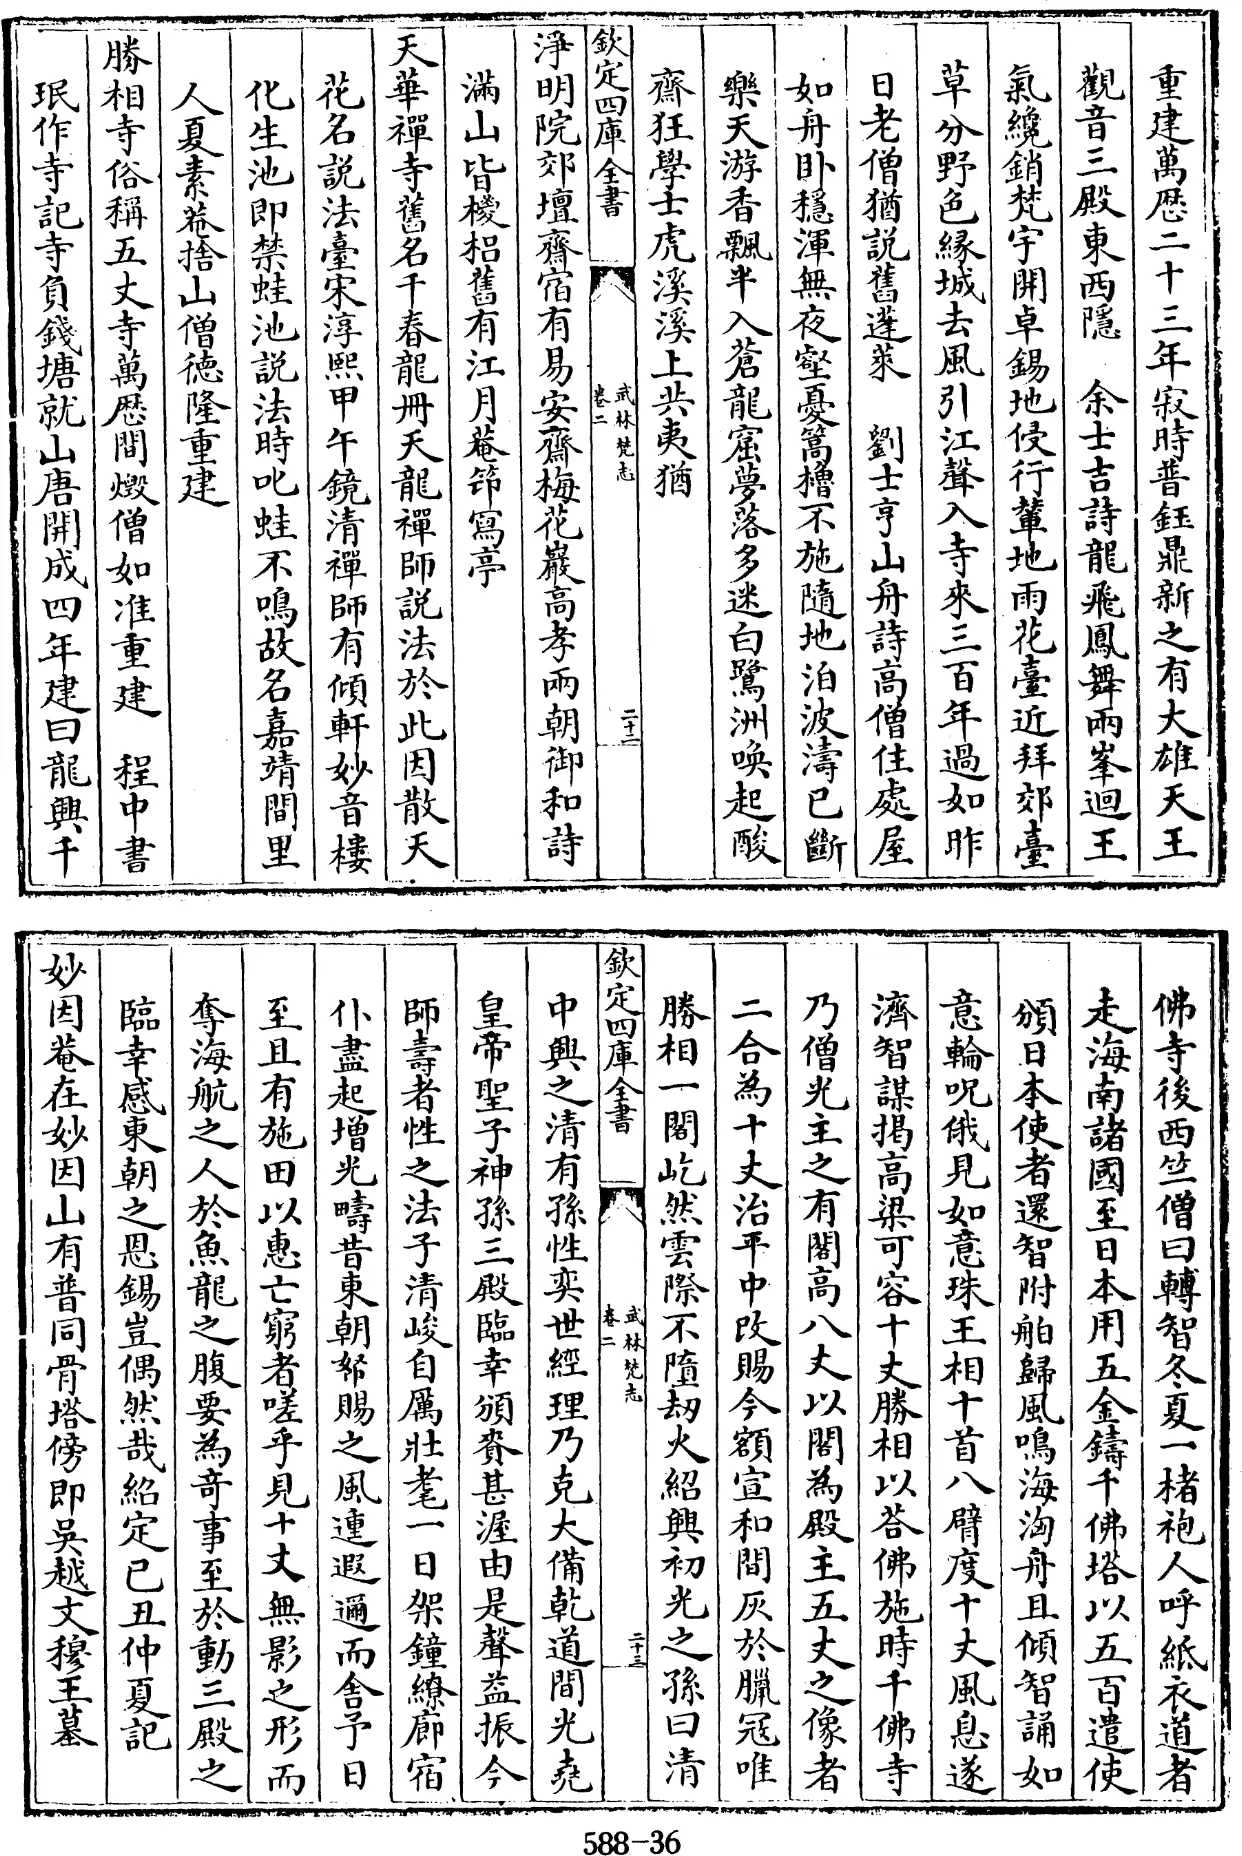 重建萬厯二十三年寂時普鈺鼎新之有大雄天王
觀音三殿東西隱　余士吉詩龍飛鳳舞兩峯迴王
氣纔銷梵宇開卓錫地侵行輦地雨花臺近拜郊臺
草分野色緣城去風引江聲入寺來三百年過如昨
日老僧猶説舊蓬萊　劉士亨山舟詩高僧住處屋
如舟卧穩渾無夜壑憂篙櫓不施隨地泊波濤已斷
樂天游香飄半入蒼龍窟夢落多迷白鷺洲喚起酸
齋狂學士虎溪溪上共夷猶
欽定四庫全書　武林梵志　卷二　二十二
淨明院郊壇齋宿有易安齋梅花巖高孝兩朝御和詩
滿山皆櫻梠舊有江月菴筇寫亭
天華禪寺舊名千春龍冊天龍禪師説法於此因散天
花名説法臺宋淳熙甲午鏡清禪師有傾軒妙音樓
化生池即禁蛙池説法時叱蛙不鳴故名嘉靖間里
人夏素菴捨山僧德隆重建
勝相寺俗稱五丈寺萬厯間燬僧如准重建　程中書
珉作寺記寺負錢塘就山唐開成四年建曰龍興千
佛寺後西竺僧曰轉智冬夏一楮袍人呼紙衣道者
走海南諸國至日本用五金鑄千佛塔以五百遣使
頒日本使者還智附舶歸風鳴海洶舟且傾智誦如
意輪呪俄見如意珠王相十首八臂度十丈風息遂
濟智謀掲高梁可容十丈勝相以荅佛施時千佛寺
乃僧光主之有閣高八丈以閣為殿主五丈之像者
二合為十丈治平中改賜今額宣和間灰於臘冦唯
勝相一閣屹然雲際不隨刼火紹興初光之孫曰清
欽定四庫全書　武林梵志　卷二　二十三
中興之清有孫性奕世經理乃克大備乾道間光堯
皇帝聖子神孫三殿臨幸頒賚甚渥由是聲益振今
師壽者性之法子清峻自厲壯耄一日架鐘繚廊宿
仆盡起增光疇昔東朝帑賜之風連遐邇而舎予日
至且有施田以惠亡窮者嗟乎見十丈無影之形而
奪海航之人於魚龍之腹要為竒事至於動三殿之
臨幸感東朝之恩錫豈偶然哉紹定己丑仲夏記
妙因菴在妙因山有普同骨塔傍即吳越文穆王墓
588-36